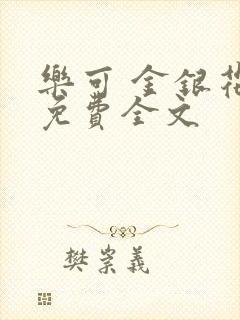 樂可 金銀花
免費全文
樊崇義